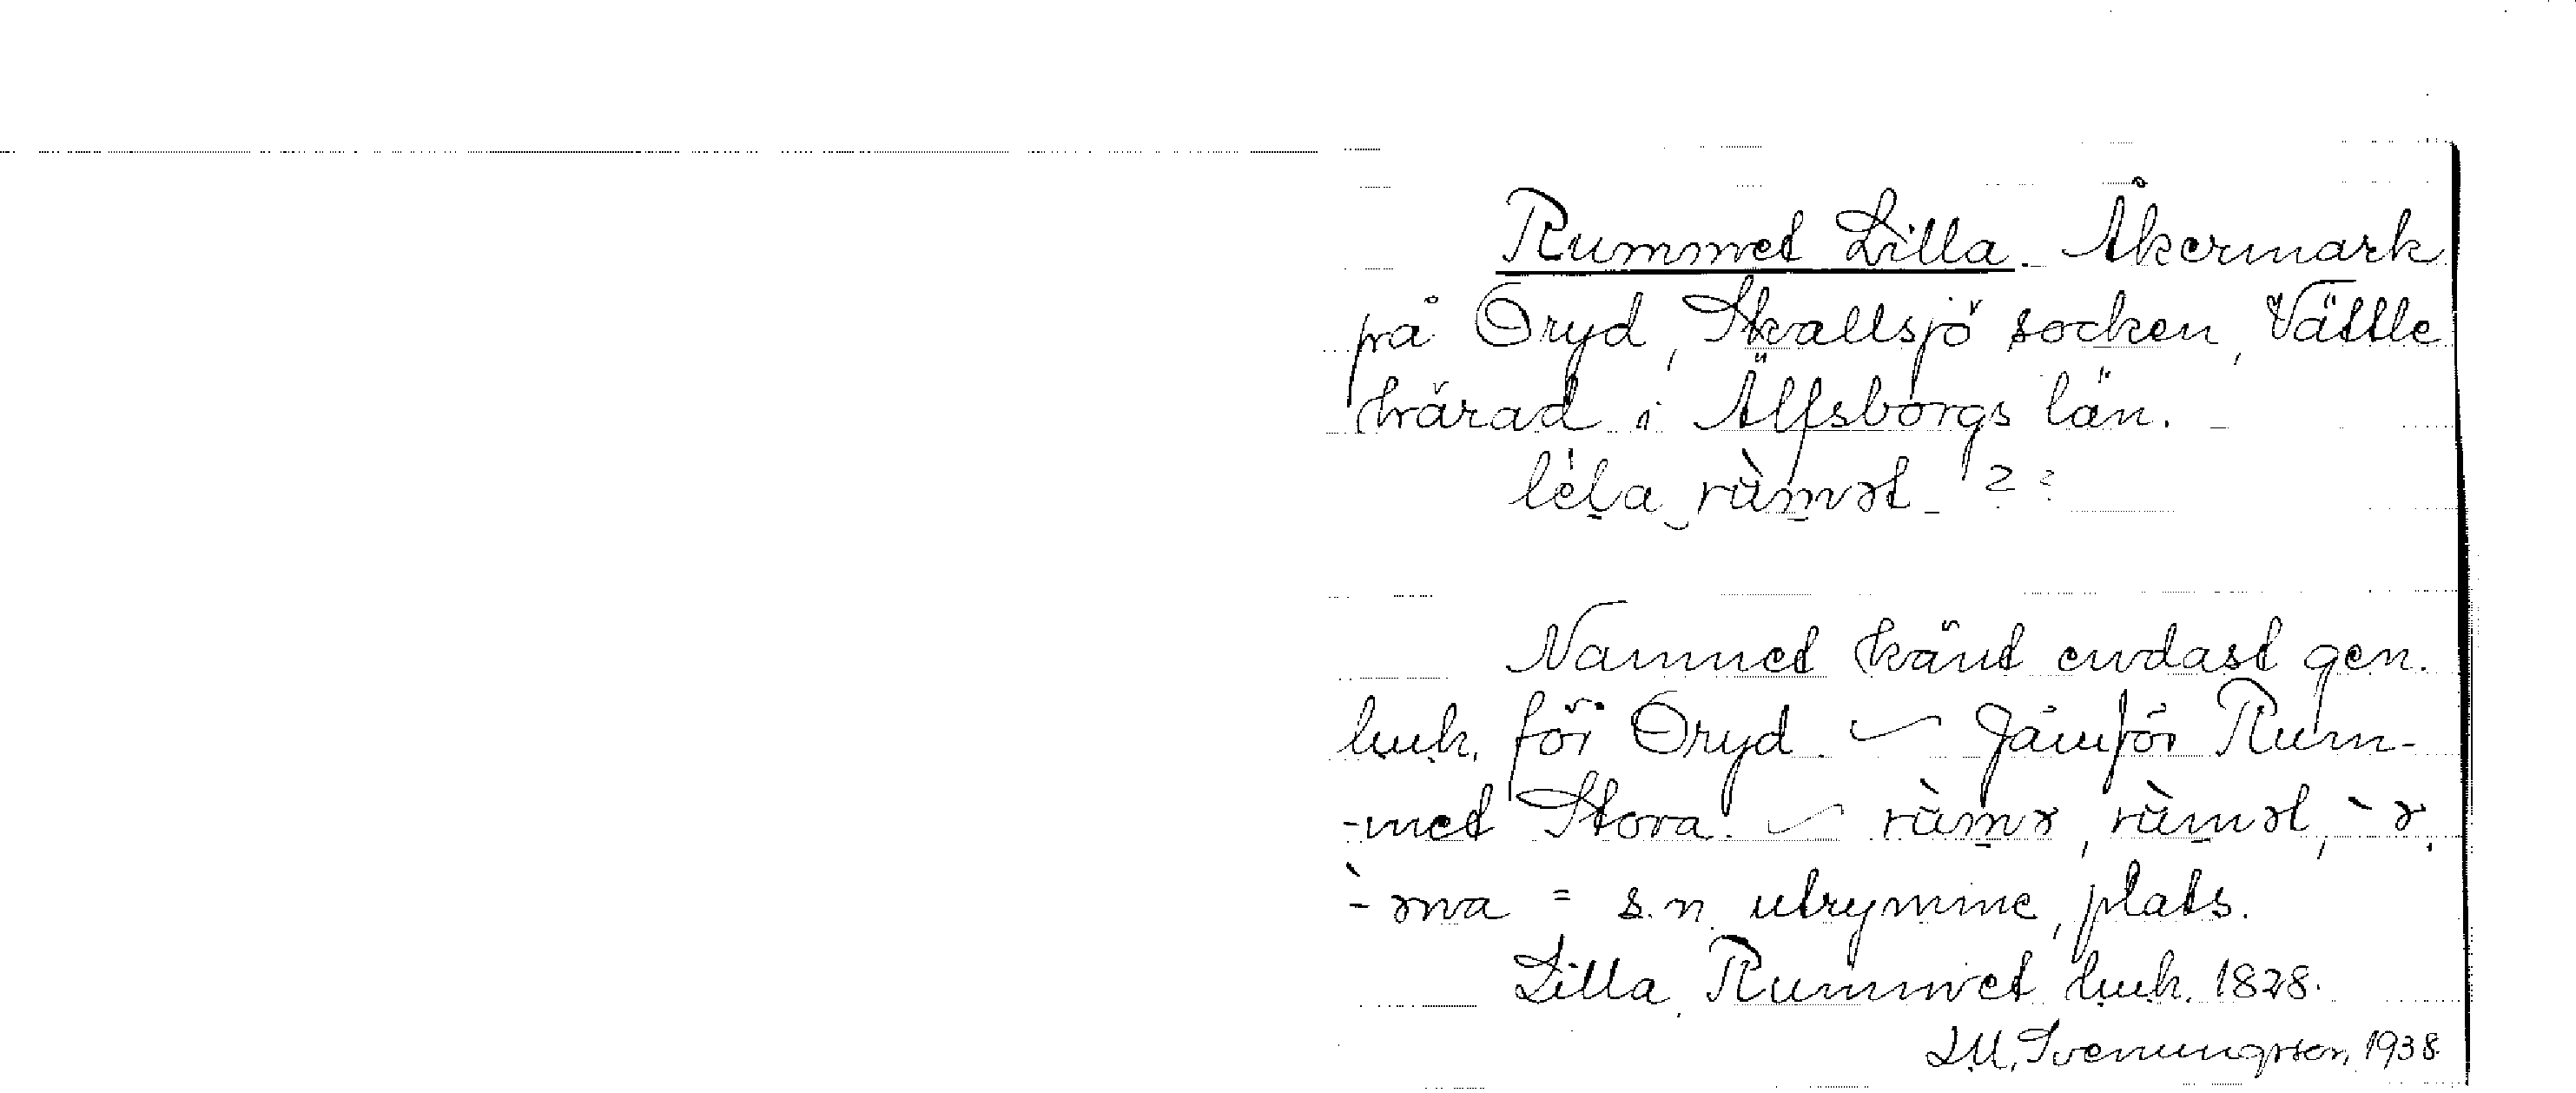 Rummet Lilla. Åkermark
på Öryd, Skallsjö socken, Vättle
härad i Älfsborgs län. -
lèl̠a‿rùm̠ət - ? ?
Namnet känt endast gen.
luk. för Öryd. ~ Jämför Rum-
-met Stora. ~ rùm̠ə, rùm̠ət, -̀ə,
-̀əna = s.n. utrymme, plats.
Lilla Rummet luk. 1828.
Sveningsson, 1938.